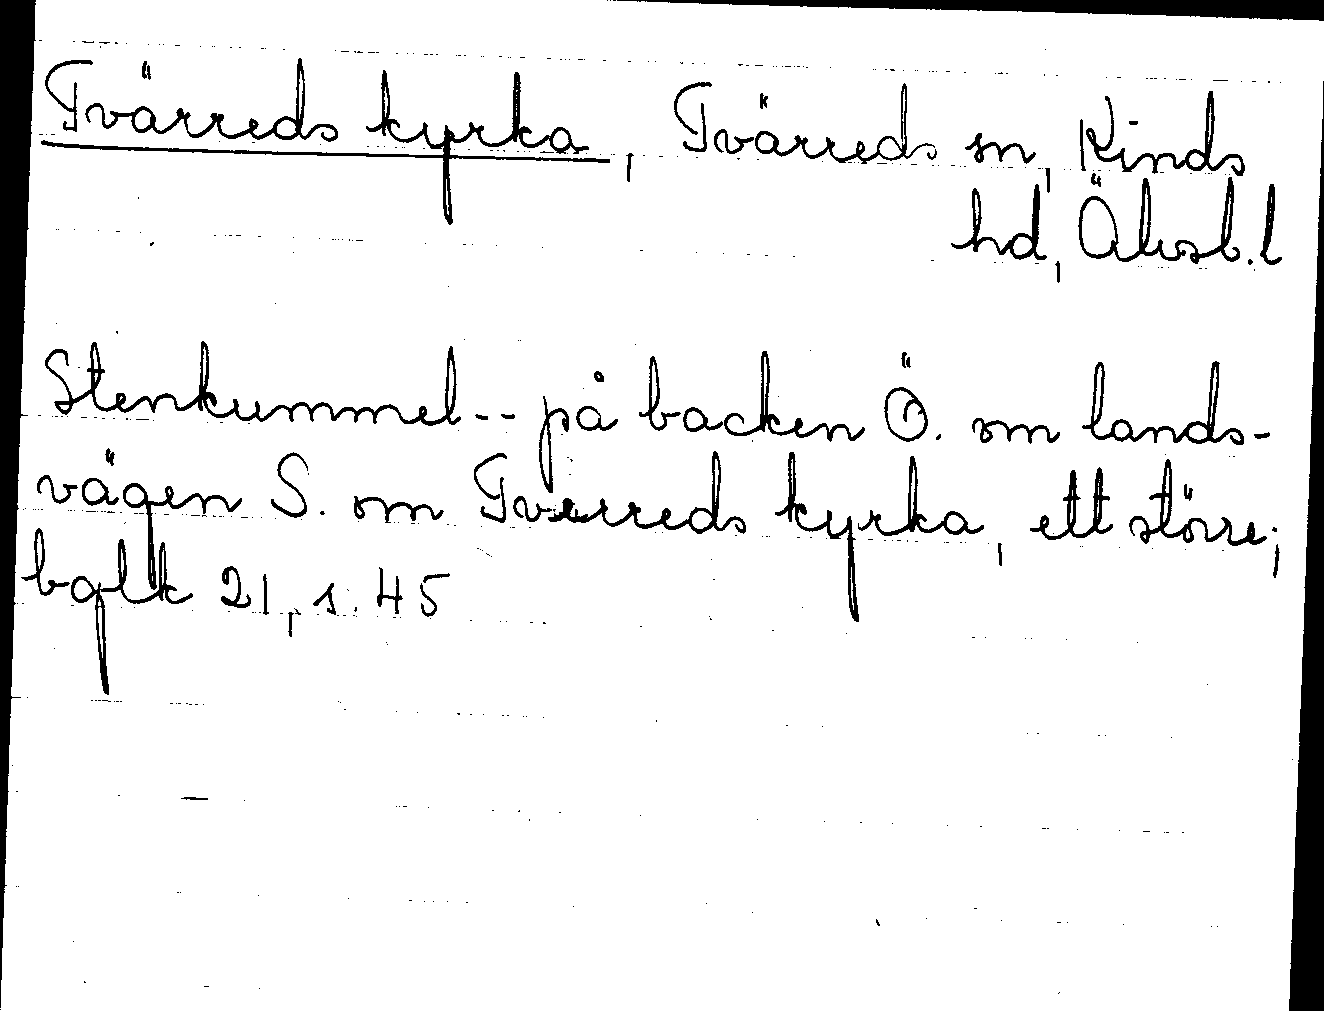 Tvärreds kyrka, Tvärreds sn, Kinds
hd, Älvsb.l
Stenkummel -- på backen Ö. om lands-
vägen S. om Tverreds kyrka, ett större;
bglk 21, s. 45